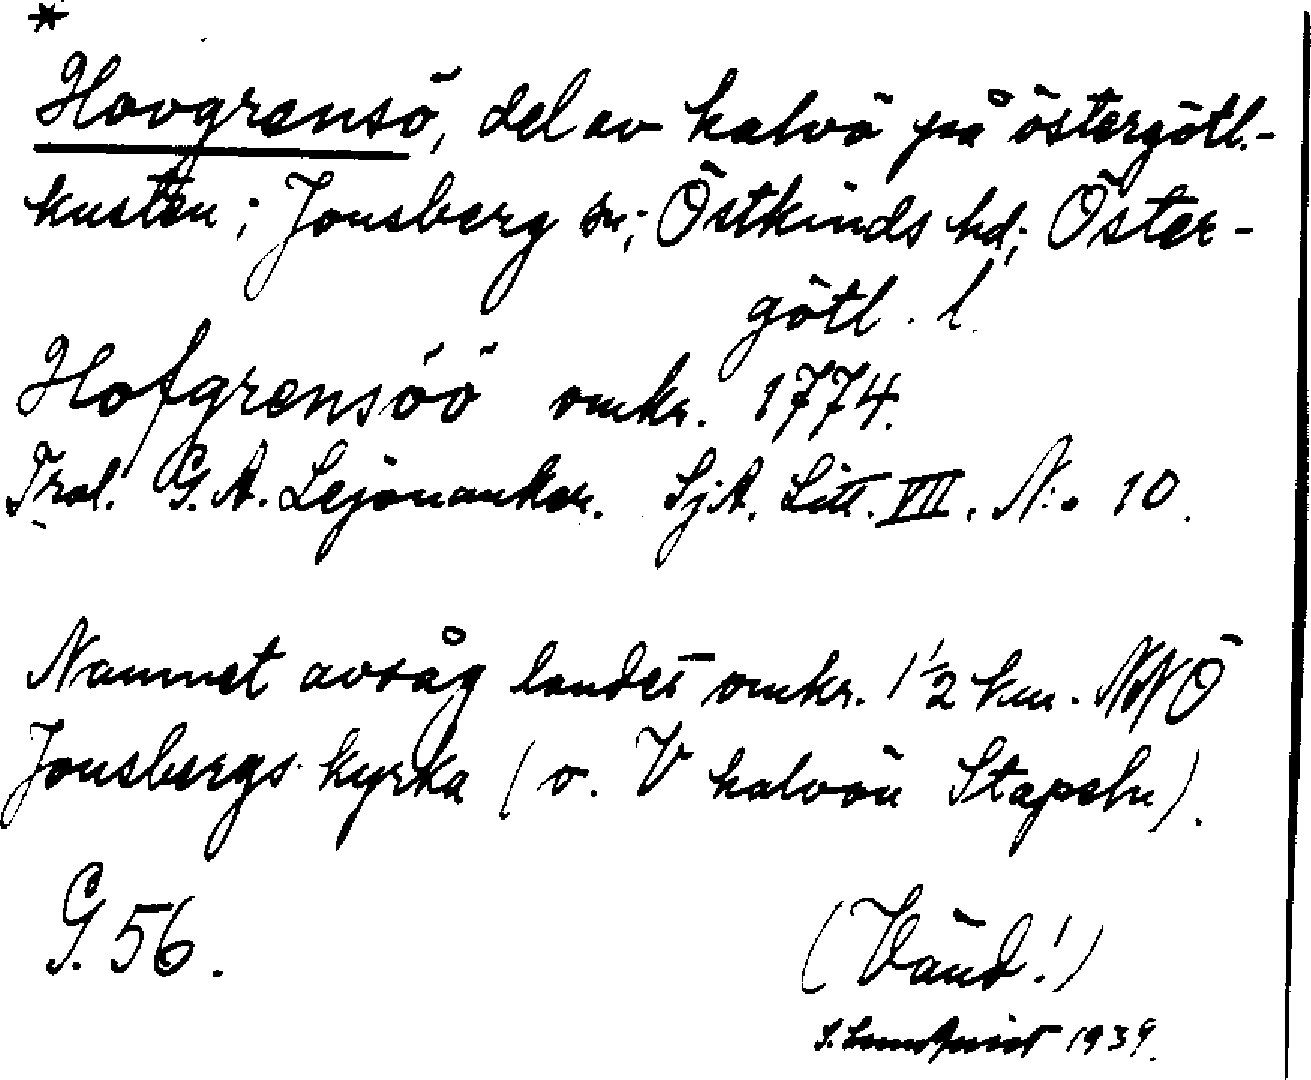 *
Hovgrensö, del av halvö på östergötl.-
kusten; Jonsberg sn; Östkinds hd; Öster-
götl. l.
Hofgrensöö omkr. 1774.
Tral. G. A. Lejonanker. SjA. Litt. VII. N:o 10.
Namnet avsåg landet omkr. 1 1/2 km. NNÖ
Jonsbergs kyrka (o. V halvön Stapeln).
G. 56.
(Vänd!)
S. Lundquist 1939.